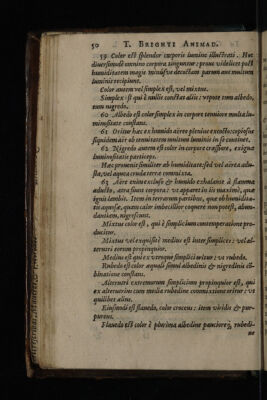 50 T. BRIGHTI ANIMAD.
59 Color est splendor corporis lumine illustrati. Hoc
diuersimode omnino corpora tinguntur: prout videlicet post
humiditatem magis minusve decoctam parum aut multum
luminis recipiunt.
Color autem vel simplex est, vel mixtus.
Simplex est qui è nullis constat aliis: vt pote cum albedo,
tum nigredo.
60 Albedo est color simplex in corpore tenuiore multa lu-
minositate constans.
61 Oritur hæc ex humido aëreo pleniùs excocto: copiosius
siquidem aër ob tenuitatem multum luminis in se continet.
62 Nigredo autem est color in corpore crassiore, exigua
luminositatis particeps.
Hæc prouenit similiter ab humiditate: sed vel aërea adu-
sta, vel aquea cruda terræ commixta.
63 Aëre enim excluso & humido exhalante à flamma
adusto, atra fiunt corpora: vt apparet in iis maximè, quæ
ignis lambit. Item in terrarum partibus, quæ ob humidita-
tis aquosæ, quam calor imbecillior coquere non potest, abun-
dantiam, nigrescunt.
Mixtus color est, qui è simplicium contemperatione pro-
ducitur.
Mixtus vel exquisitè medius est inter simplices: vel al-
terutri eorum propinquior.
Medius est qui ex vtroque simplici oritur: vt rubedo.
Rubedo est color æquali simul albedinis & nigredinis cõ-
binatione constans.
Alterutri extremorum simplicium propinquior est, qui
ex alterutrius cum media rubedine commixtione oritur: vt
quilibet alius.
Eiusmodi est flauedo, color croceus: item viridis & pur-
pureus.
Flauedo est color è plurima albedine paucioreq́; rubedi-
ne